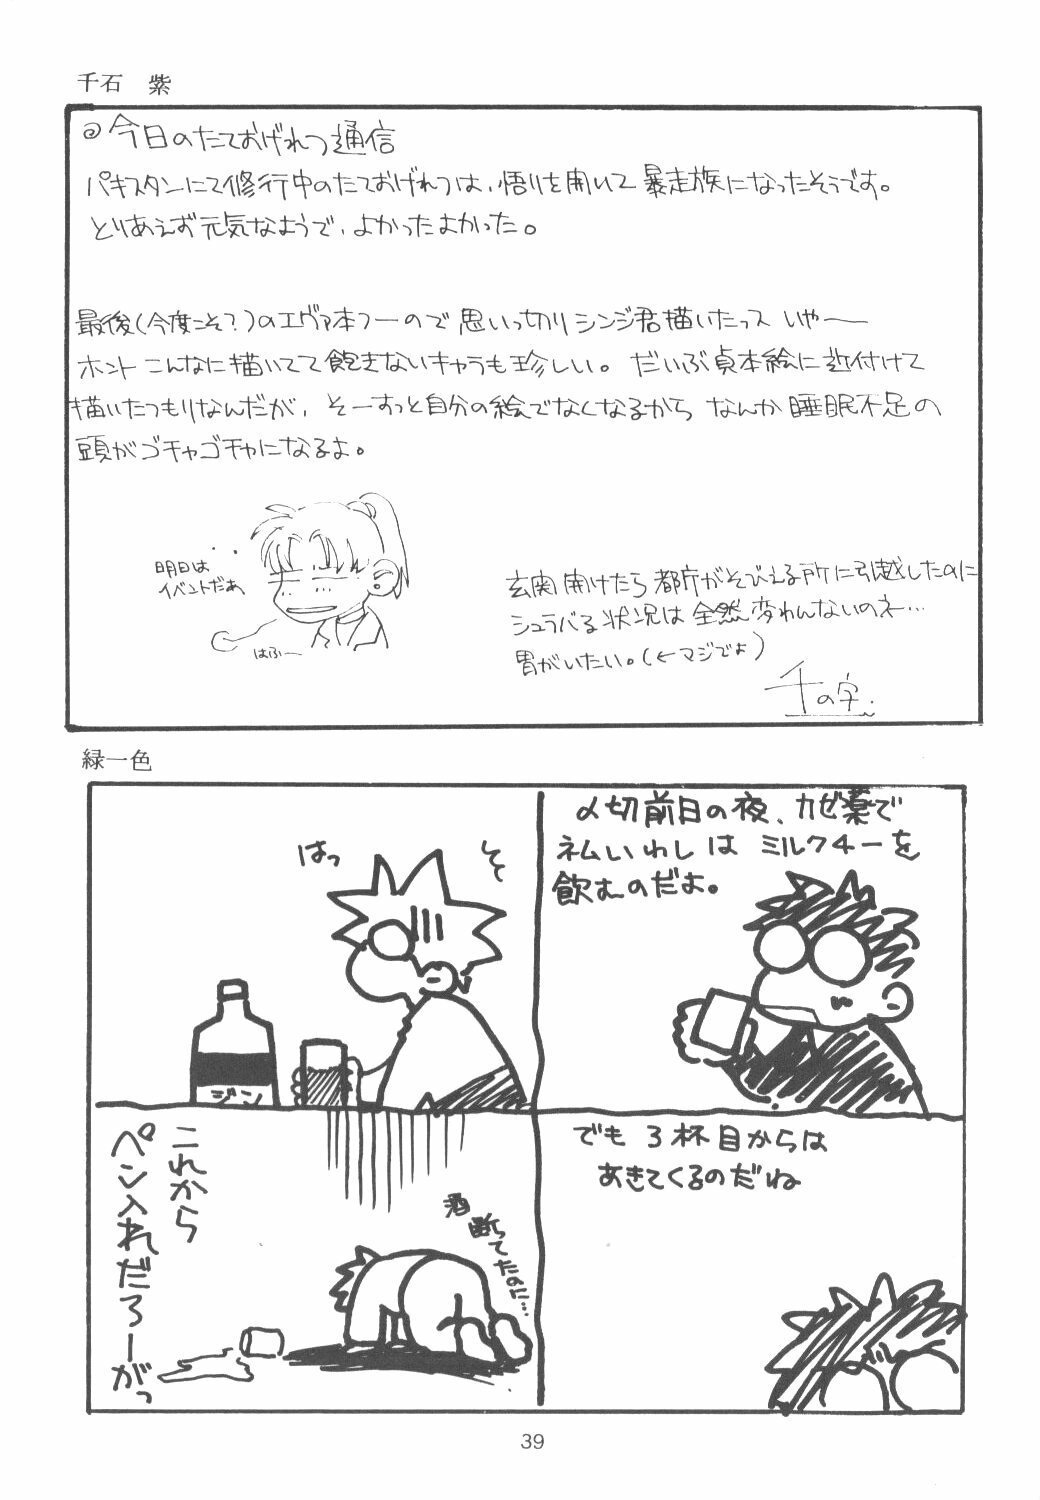 千石　紫
◎今日のたておげれつ通信
パキスタンにて修行中のたておげれつは、悟りを開いて暴走族になったそうです。
とりあえず元気なようで、よかったよかった。
最後(今度こそ?)のエヴァ本つーので思いっ切りシンジ君描いたっス いやー
ホント こんなに描いてて飽きないキャラも珍しい。だいぶ貞本絵に近付けて
描いたつもりなんだが、そーすっと自分の絵でなくなるから なんか睡眠不足の
頭がゴチャゴチャになるよ。
明日は
イベントだぁ
はふー
玄関開けたら都庁がそびえる所に引越したのに
シュラバる状況は全然変わんないのネー…
胃がいたい。(←マジでよ)
千の字.
緑一色
〆切前日の夜、カゼ薬で
ネムいわしは ミルクチーを
飲むのだよ。
でも 3杯目からは
あきてくるのだね
はっ
そ
ジン
これから
ペン入れだろーがっ
酒
断ってたのに…
39